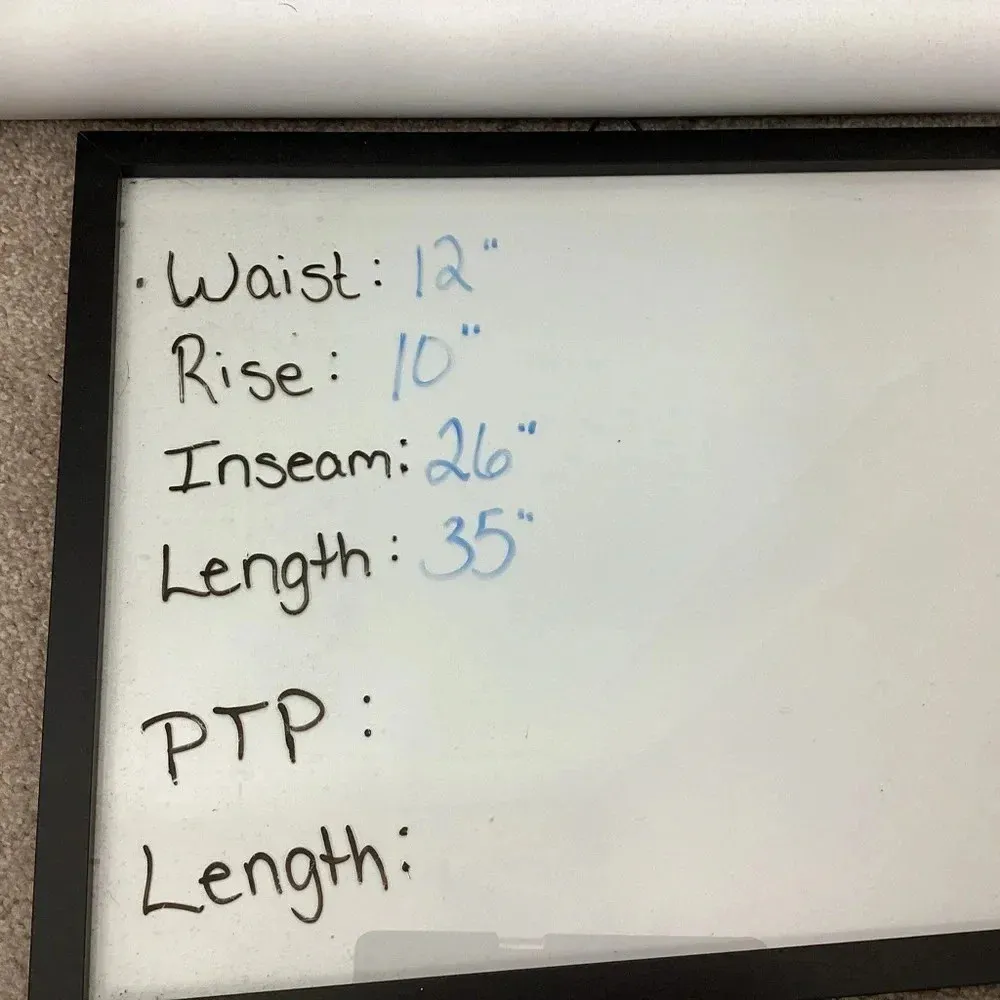 Waist: 12"
Rise: 10"
Inseam: 26"
Length: 35"
PTP:
Length: